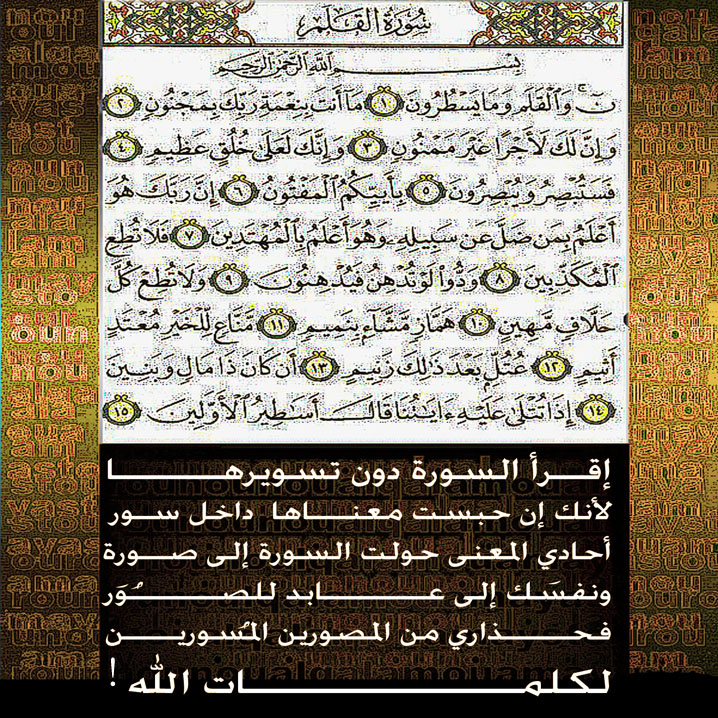 سُورَةُ القَلَمِ
بِسْمِ اللَّهِ الرَّحْمَٰنِ الرَّحِيمِ
نٓ ۚ وَٱلْقَلَمِ وَمَا يَسْطُرُونَ ١ مَآ أَنتَ بِنِعْمَةِ رَبِّكَ بِمَجْنُونٍ ٢
وَإِنَّ لَكَ لَأَجْرًا غَيْرَ مَمْنُونٍ ٣ وَإِنَّكَ لَعَلَىٰ خُلُقٍ عَظِيمٍ ٤
فَسَتُبْصِرُ وَيُبْصِرُونَ ٥ بِأَييِّكُمُ ٱلْمَفْتُونُ ٦ إِنَّ رَبَّكَ هُوَ
أَعْلَمُ بِمَن ضَلَّ عَن سَبِيلِهِۦ وَهُوَ أَعْلَمُ بِٱلْمُهْتَدِينَ ٧ فَلَا تُطِعِ
ٱلْمُكَذِّبِينَ ٨ وَدُّوا۟ لَوْ تُدْهِنُ فَيُدْهِنُونَ ٩ وَلَا تُطِعْ كُلَّ
حَلَّافٍ مَّهِينٍ ١٠ هَمَّازٍ مَّشَّآءٍۭ بِنَمِيمٍ ١١ مَّنَّاعٍ لِّلْخَيْرِ مُعْتَدٍ
أَثِيمٍ ١٢ عُتُلٍّۭ بَعْدَ ذَٰلِكَ زَنِيمٍ ١٣ أَن كَانَ ذَا مَالٍ وَبَنِينَ
١٤ إِذَا تُتْلَىٰ عَلَيْهِ ءَايَٰتُنَا قَالَ أَسَٰطِيرُ ٱلْأَوَّلِينَ ١٥
إقـــرأ السـورة دون تسـويرهـــا
لأنك إن حبست معنـــاها داخل سـور
أحادي المعنى حولت السورة إلى صـــورة
ونفسَك إلى عـــابد للصـــُوَر
فحـــذاري من المصورين المُسوريـــن
لكلمـــات الله !